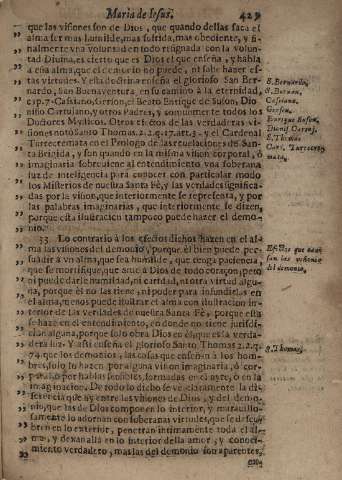 Maria de Iesus. 429
que las visiones son de Dios, que quando dellas saca el
alma ser mas humilde, mas sufrida, mas obediente, y fi-
nalmente vna voluntad en todo resignada con la volun-
tad Diuina, es cierto que es Dios el que enseña, y habla
a essa alma, que el demonio no puede, ni sabe hazer es-
tas virtudes. Y esta doctrina enseña el glorioso San Ber-
nardo, San Buenaventura, en su camino a la eternidad,
cap. 7. Cassiano, Gerson, el Beato Enrique de Suson, Dio-
nisio Cartujano, y otros Padres, y comunmente todos los
Doctores Mysticos. Otros efectos de las verdaderas vi-
siones notò Santo Thomas. 2. 2. q. 17. art. 3. y el Cardenal
Turrecremata en el Prologo de las reuelaciones de San-
ta Brigida, y son quando en la misma vision corporal, ò
imaginaria sobreuiene al entendimiento vna soberana
luz de inteligencia para conocer con particular modo
los Misterios de nuestra Santa Fè, y las verdades significa-
das por la vision, que interiormente se representa, y por
las palabras imaginarias, que interiormente se dizen,
porque esta ilustracion tampoco puede hazer el demo-
nio.
S. Bernardo,
S. Buenav.
Casiano.
Gerson.
Enrique Suson.
Dionis. Cartuj.
S. Thomas
Card. Turrecre-
mata.
33. Lo contrario à los efectos dichos hazen en el al-
ma las visiones del demonio, porque èl bien puede per-
suadir à vn alma, que sea humilde, que tenga paciencia,
que se mortifique, que ame à Dios de todo coraçon, pero
ni puede darle humildad, ni caridad, ni otra virtud algu-
na, porque èl no las tiene, ni poder para infundirlas en
el alma, menos puede ilustrar el alma con ilustracion in-
terior de las verdades de nuestra Santa Fè, porque esta
se haze en el entendimiento, en donde no tiene jurisdi-
cion alguna, porque solo obra Dios en èl, que es la verda-
dera luz. Y assi enseña el glorioso Santo Thomas 2. 2. q.
que los demonios, las cosas que enseñan à los hom-
bres, solo lo hazen por alguna vision imaginaria, ò cor-
poral, o por hablas sensibles, formadas en el ayre, ò en la
imaginacion. De todo lo dicho se ve claramente la di-
ferencia que ay entre las visiones de Dios, y del demo-
nio, que las de Dios componen lo interior, y marauillo-
samente lo adornan con soberanas virtudes, que se descu-
bren en lo exterior, penetran intimamente toda el al-
ma, y dexanla en lo interior della amor, y conoci-
miento verdadero, mas las del demonio son aparentes,
Efectos que cau-
san las visiones
del demonio.
S. Thomas.